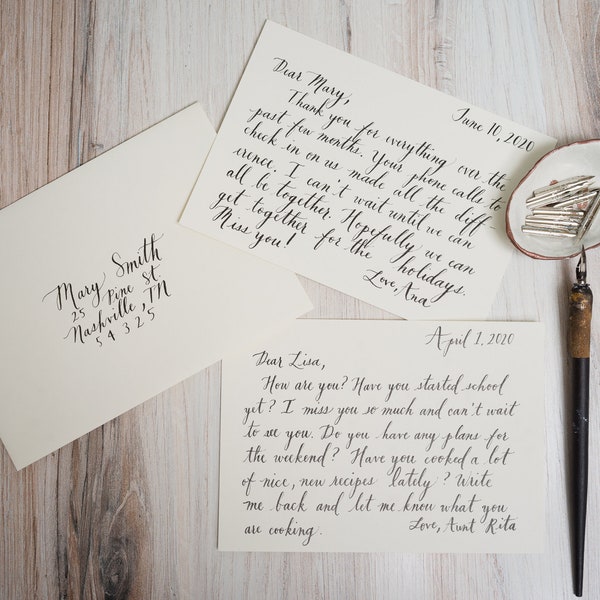 Dear Mary,
June 10, 2020
Thank you for everything over the
past few months. Your phone calls to
check in on us made all the diff-
erence. I can't wait until we can
all be together. Hopefully we can
get together for the holidays.
Miss you!
Love, Ana
Mary Smith
25 Pine St
Nashville TN
54325
April 1, 2020
Dear Lisa,
How are you? Have you started school
yet? I miss you so much and can't wait
to see you. Do you have any plans for
the weekend? Have you cooked a lot
of nice, new recipes lately? Write
me back and let me know what you
are cooking.
Love, Aunt Rita